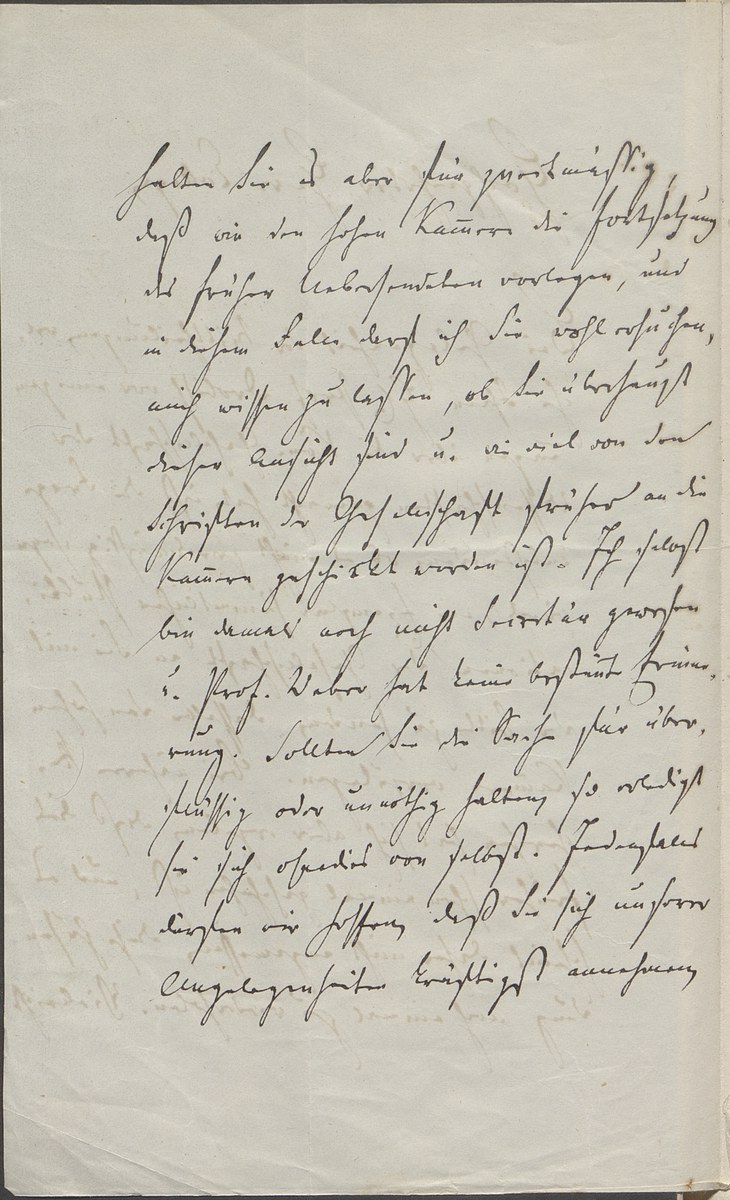 halten Sie es aber für zweckmässig,
daß wir den hohen Kam̄ern die Fortsetzung
des früher Uebersendeten vorlegen, und
in diesem Falle darf ich Sie wohl ersuchen,
mich wissen zu lassen, ob Sie überhaupt
dieser Ansicht sind u. wie viel von den
Schriften der Gesellschaft früher an die
Kam̄ern geschickt worden ist. Ich selbst
bin damals noch nicht Secretär gewesen
u. Prof. Weber hat keine bestim̄te Erinne-
rung. Sollten Sie die Sache für über-
flüssig oder unnöthig halten, so erledigt
sie sich ohnedies von selbst. Jedenfalls
dürfen wir hoffen, daß Sie sich unserer
Angelegenheiten kräftigst annehmen,